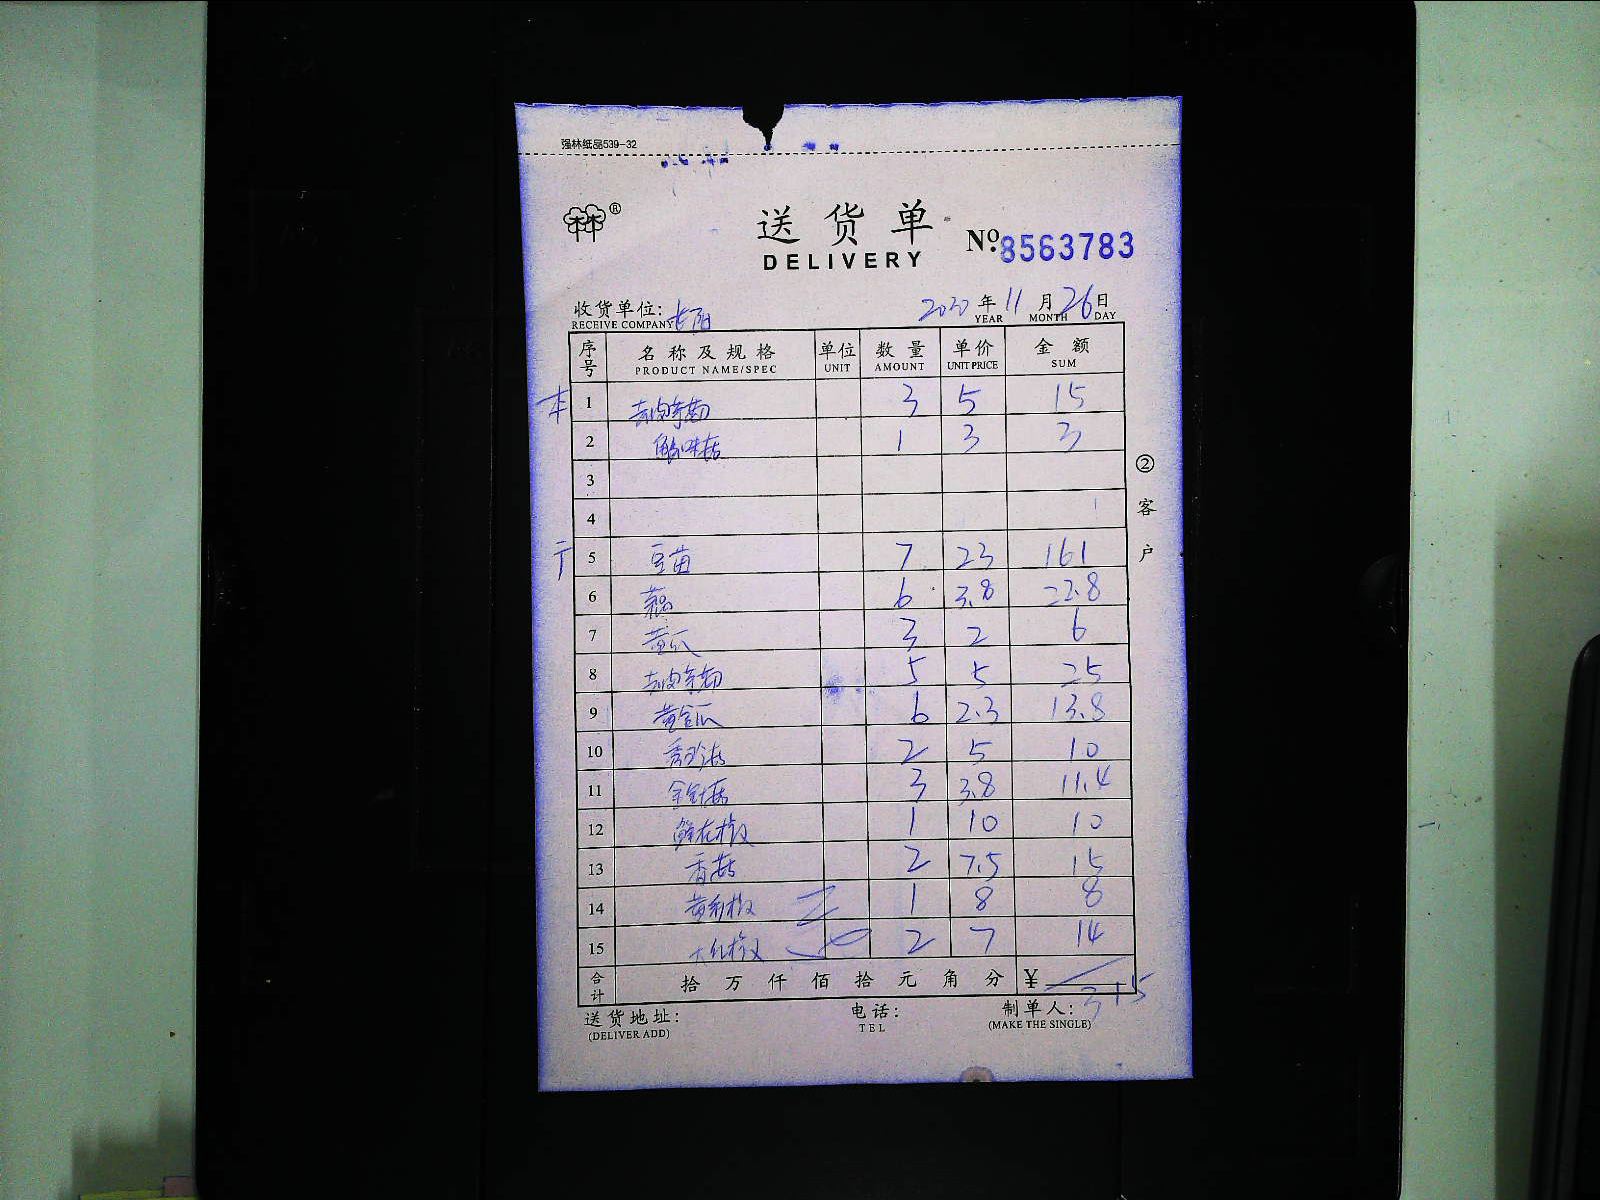 强林纸品539-32
®
送货单 №8563783
DELIVERY
收货单位: 2020年11月26日
RECEIVE COMPANY YEAR MONTH DAY
序号 名称及规格 单位 数量 单价 金额
PRODUCT NAME/SPEC UNIT AMOUNT UNIT PRICE SUM
本 1 去皮茅笋 3 5 15
2 蟹味菇 1 3 3
3
4
5 豆苗 7 23 161
6 6 3.8 22.8
7 黄瓜 3 2 6
8 去皮茅笋 5 5 25
9 黄金瓜 6 2.3 13.8
10 秀珍菇 2 5 10
11 金针菇 3 3.8 11.4
12 鲜花椒 1 10 10
13 香菇 2 7.5 15
14 黄彩椒 1 8 8
15 大红椒 2 7 14
合计 拾 万 仟 佰 拾 元 角 分 ¥ 315
送货地址: 电话: 制单人:
(DELIVER ADD) TEL (MAKE THE SINGLE)
②客户